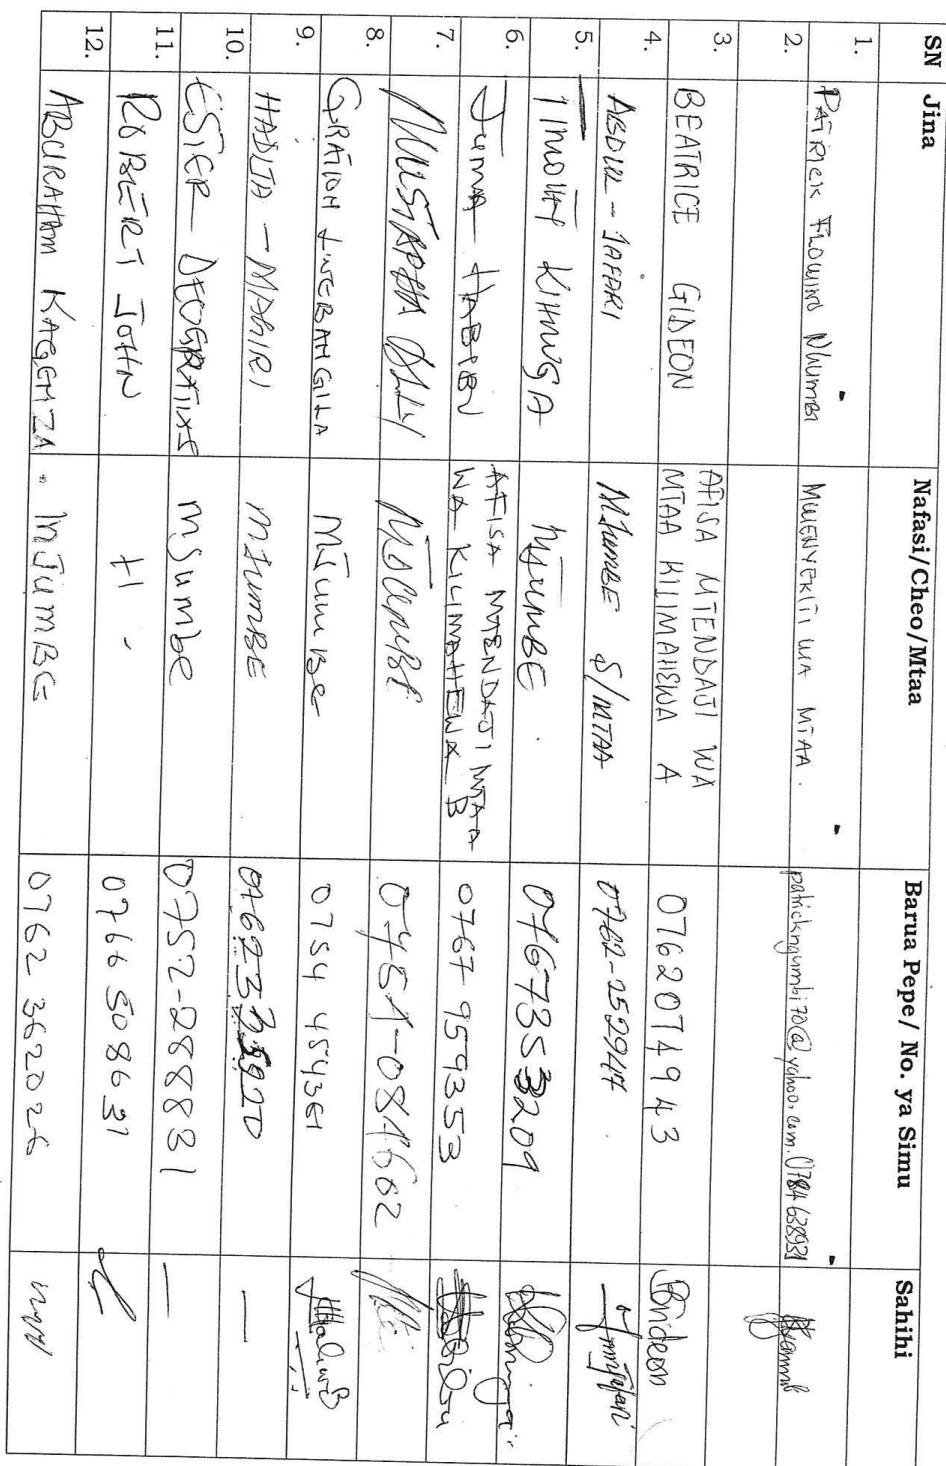 SN Jina Nafasi/Cheo/Mtaa Barua Pepe/ No. ya Simu Sahihi
1.
2. PATRICK NHUMBI MWENYEKITI WA MTAA. patrickngumbi70@yahoo.com. 0784 638931
3.
BEATRICE GIDEON AFISA MTENDAJI WA
MTAA KILIMAHEWA A 0762074943
4. ABDUL - JAFARI MJUMBE S/MTAA 0762-252944
5. TIMOTHY KIHWGA MJUMBE. 0767353209
6. JUMA HABIBU AFISA MTENDAJI MTAA
WA KILIMAHEWA B 0767 959353
7. MUSTAPHA ALLY MJUMBE
8. GRATION MJUMBE 0754 454361
9. HADIJA - MAHIRI MJUMBE
10. ESTER DEOGRATIXS MJUMBE 0752-288831
11. ROBERT JOHN - 11 - 0766 508631
12. ABURAHAM KAGENZA. MJUMBE 0762 362026